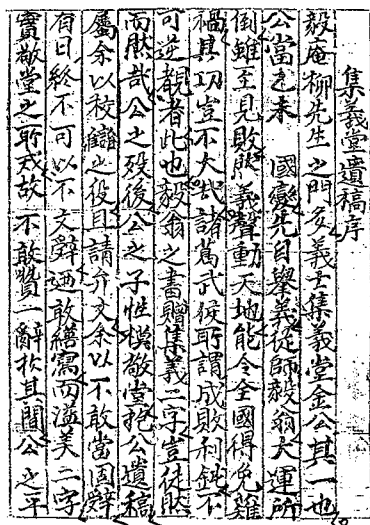 集義堂遺稿序
毅庵柳先生之門多義士集義堂金公其一也
公當乙未 國變先自擧義從師毅翁大運所
倒雖至見敗然義聲動天地能令全國得免雖
禍其功豈不大哉諸葛武侯所謂成敗利鈍不
可逆覩者此也毅翁之書贈集義二字豈徒然
而然哉公之歿後公之子性模敬堂抱公遺稿
屬余以校讎之役且請弁文余以不敢當固辭
有日終不可以不文辭迺敢繕寫而溢美二字
實敬堂之所戒故 不敢贊一辭於其間公之平